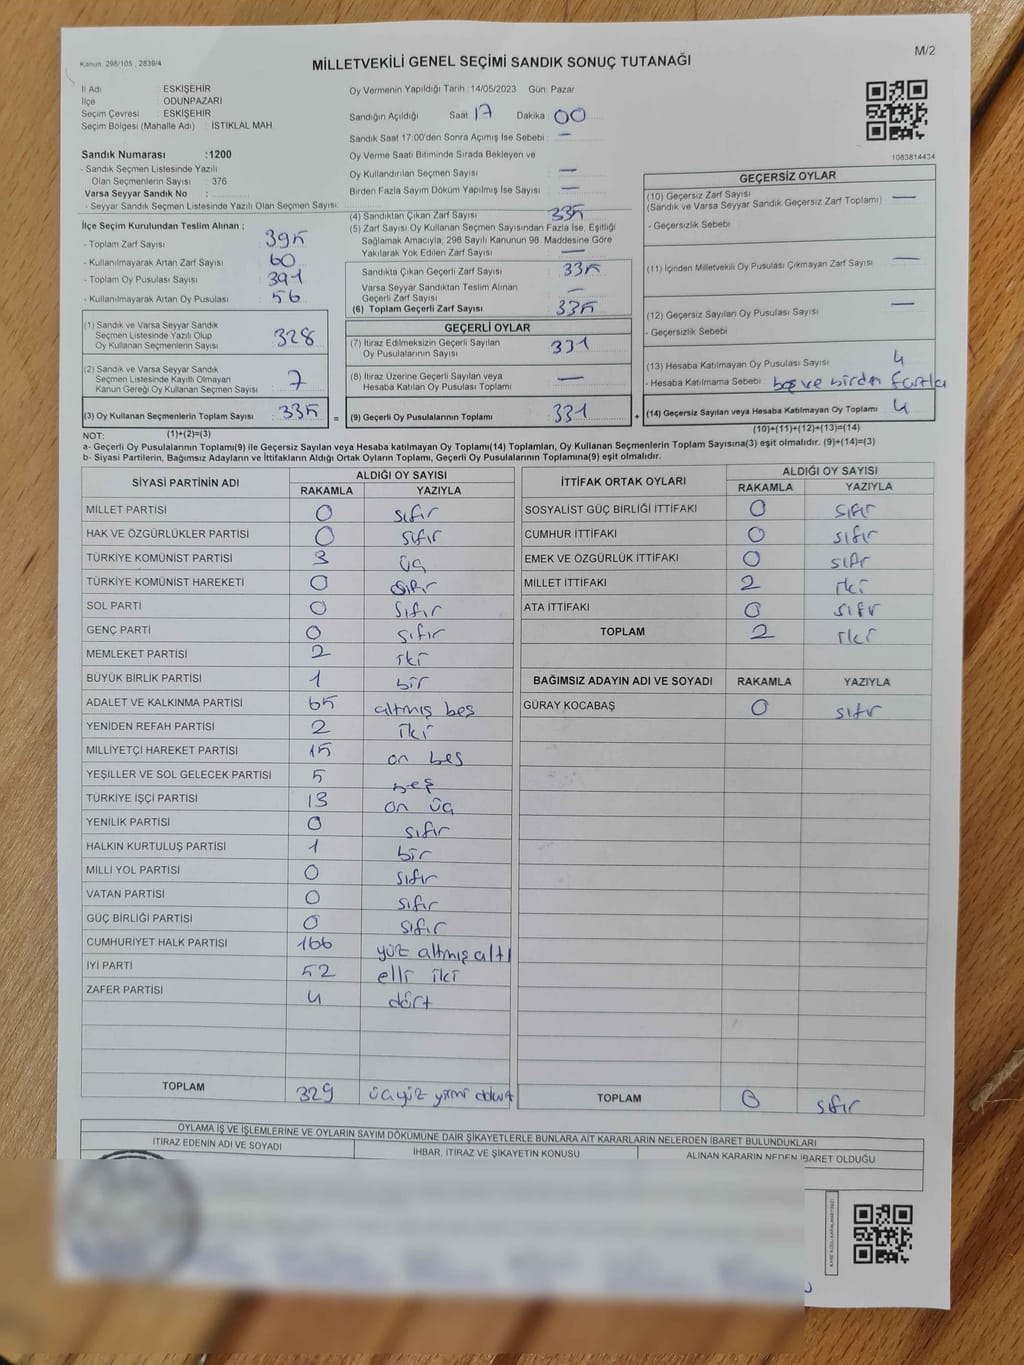 Kanun: 298/105, 2839/4
MİLLETVEKİLİ GENEL SEÇİMİ SANDIK SONUÇ TUTANAĞI
M/2
İl Adı ESKİŞEHİR
İlçe ODUNPAZARI
Seçim Çevresi ESKİŞEHİR
Seçim Bölgesi (Mahalle Adı) : İSTİKLAL MAH
Sandık Numarası :1200
- Sandık Seçmen Listesinde Yazılı
Olan Seçmenlerin Sayısı : 376
Varsa Seyyar Sandık No :
- Seyyar Sandık Seçmen Listesinde Yazılı Olan Seçmen Sayısı:
İlçe Seçim Kurulundan Teslim Alınan ;
- Toplam Zarf Sayısı : 395
- Kullanılmayarak Artan Zarf Sayısı : 60
- Toplam Oy Pusulası : 391
- Kullanılmayarak Artan Oy Pusulası : 56
(1) Sandık ve Varsa Seyyar Sandık
Seçmen Listesinde Yazılı Olup
Oy Kullanan Seçmenlerin Sayısı : 328
(2) Sandık ve Varsa Seyyar Sandık
Seçmen Listesinde Kayıtlı Olmayan
Kanun Gereği Oy Kullanan Seçmen Sayısı : 7
(3) Oy Kullanan Seçmenlerin Toplam Sayısı : 335 =
Oy Vermenin Yapıldığı Tarih :14/05/2023 Gün: Pazar
Sandığın Açıldığı Saat: 17 Dakika : 00
Sandık Saat 17:00'den Sonra Açımış İse Sebebi : —
Oy Verme Saati Bitiminde Sırada Bekleyen ve
Oy Kullandırılan Seçmen Sayısı : —
Birden Fazla Sayım Döküm Yapılmış İse Sayısı : —
(4) Sandıktan Çıkan Zarf Sayısı : 335
(5) Zarf Sayısı Oy Kullanan Seçmen Sayısından Fazla İse, Eşitliği
Sağlamak Amacıyla; 298 Sayılı Kanunun 98. Maddesine Göre
Yakılarak Yok Edilen Zarf Sayısı : —
Sandıkta Çıkan Geçerli Zarf Sayısı : 335
Varsa Seyyar Sandıktan Teslim Alınan
Geçerli Zarf Sayısı : —
(6) Toplam Geçerli Zarf Sayısı : 335
GEÇERLİ OYLAR
(7) İtiraz Edilmeksizin Geçerli Sayılan
Oy Pusulalarının Sayısı : 331
(8) İtiraz Üzerine Geçerli Sayılan veya
Hesaba Katılan Oy Pusulası Toplamı : —
(9) Geçerli Oy Pusulalarının Toplamı : 331 +
1083814434
GEÇERSİZ OYLAR
(10) Geçersiz Zarf Sayısı
(Sandık ve Varsa Seyyar Sandık Geçersiz Zarf Toplamı) : —
- Geçersizlik Sebebi
(11) İçinden Milletvekili Oy Pusulası Çıkmayan Zarf Sayısı : —
(12) Geçersiz Sayılan Oy Pusulası Sayısı : —
- Geçersizlik Sebebi
(13) Hesaba Katılmayan Oy Pusulası Sayısı : 4
- Hesaba Katılmama Sebebi : boş ve birden fazla
(14) Geçersiz Sayılan veya Hesaba Katılmayan Oy Toplamı : 4
NOT: (1)+(2)=(3) (10)+(11)+(12)+(13)=(14)
a- Geçerli Oy Pusulalarının Toplamı(9) ile Geçersiz Sayılan veya Hesaba katılmayan Oy Toplamı(14) Toplamları, Oy Kullanan Seçmenlerin Toplam Sayısına(3) eşit olmalıdır. (9)+(14)=(3)
b- Siyasi Partilerin, Bağımsız Adayların ve İttifakların Aldığı Ortak Oyların Toplamı, Geçerli Oy Pusulalarının Toplamına(9) eşit olmalıdır.
SİYASİ PARTİNİN ADI ALDIĞI OY SAYISI
RAKAMLA YAZIYLA
MİLLET PARTİSİ 0 sıfır
HAK VE ÖZGÜRLÜKLER PARTİSİ 0 sıfır
TÜRKİYE KOMÜNİST PARTİSİ 3 üç
TÜRKİYE KOMÜNİST HAREKETİ 0 sıfır
SOL PARTİ 0 sıfır
GENÇ PARTİ 0 sıfır
MEMLEKET PARTİSİ 2 iki
BÜYÜK BİRLİK PARTİSİ 1 bir
ADALET VE KALKINMA PARTİSİ 65 altmış beş
YENİDEN REFAH PARTİSİ 2 iki
MİLLİYETÇİ HAREKET PARTİSİ 15 on beş
YEŞİLLER VE SOL GELECEK PARTİSİ 5 beş
TÜRKİYE İŞÇİ PARTİSİ 13 on üç
YENİLİK PARTİSİ 0 sıfır
HALKIN KURTULUŞ PARTİSİ 1 bir
MİLLİ YOL PARTİSİ 0 sıfır
VATAN PARTİSİ 0 sıfır
GÜÇ BİRLİĞİ PARTİSİ 0 sıfır
CUMHURİYET HALK PARTİSİ 166 yüz altmış altı
İYİ PARTİ 52 elli iki
ZAFER PARTİSİ 4 dört
TOPLAM 329 üçyüz yirmi dokuz
İTTİFAK ORTAK OYLARI ALDIĞI OY SAYISI
RAKAMLA YAZIYLA
SOSYALİST GÜÇ BİRLİĞİ İTTİFAKI 0 sıfır
CUMHUR İTTİFAKI 0 sıfır
EMEK VE ÖZGÜRLÜK İTTİFAKI 0 sıfır
MİLLET İTTİFAKI 2 iki
ATA İTTİFAKI 0 sıfır
TOPLAM 2 iki
BAĞIMSIZ ADAYIN ADI VE SOYADI RAKAMLA YAZIYLA
GÜRAY KOCABAŞ 0 sıfır
TOPLAM 0 sıfır
OYLAMA İŞ VE İŞLEMLERİNE VE OYLARIN SAYIM DÖKÜMÜNE DAİR ŞİKAYETLERLE BUNLARA AİT KARARLARIN NELERDEN İBARET BULUNDUKLARI
İTİRAZ EDENİN ADI VE SOYADI İHBAR, İTİRAZ VE ŞİKAYETİN KONUSU ALINAN KARARIN NEDEN İBARET OLDUĞU